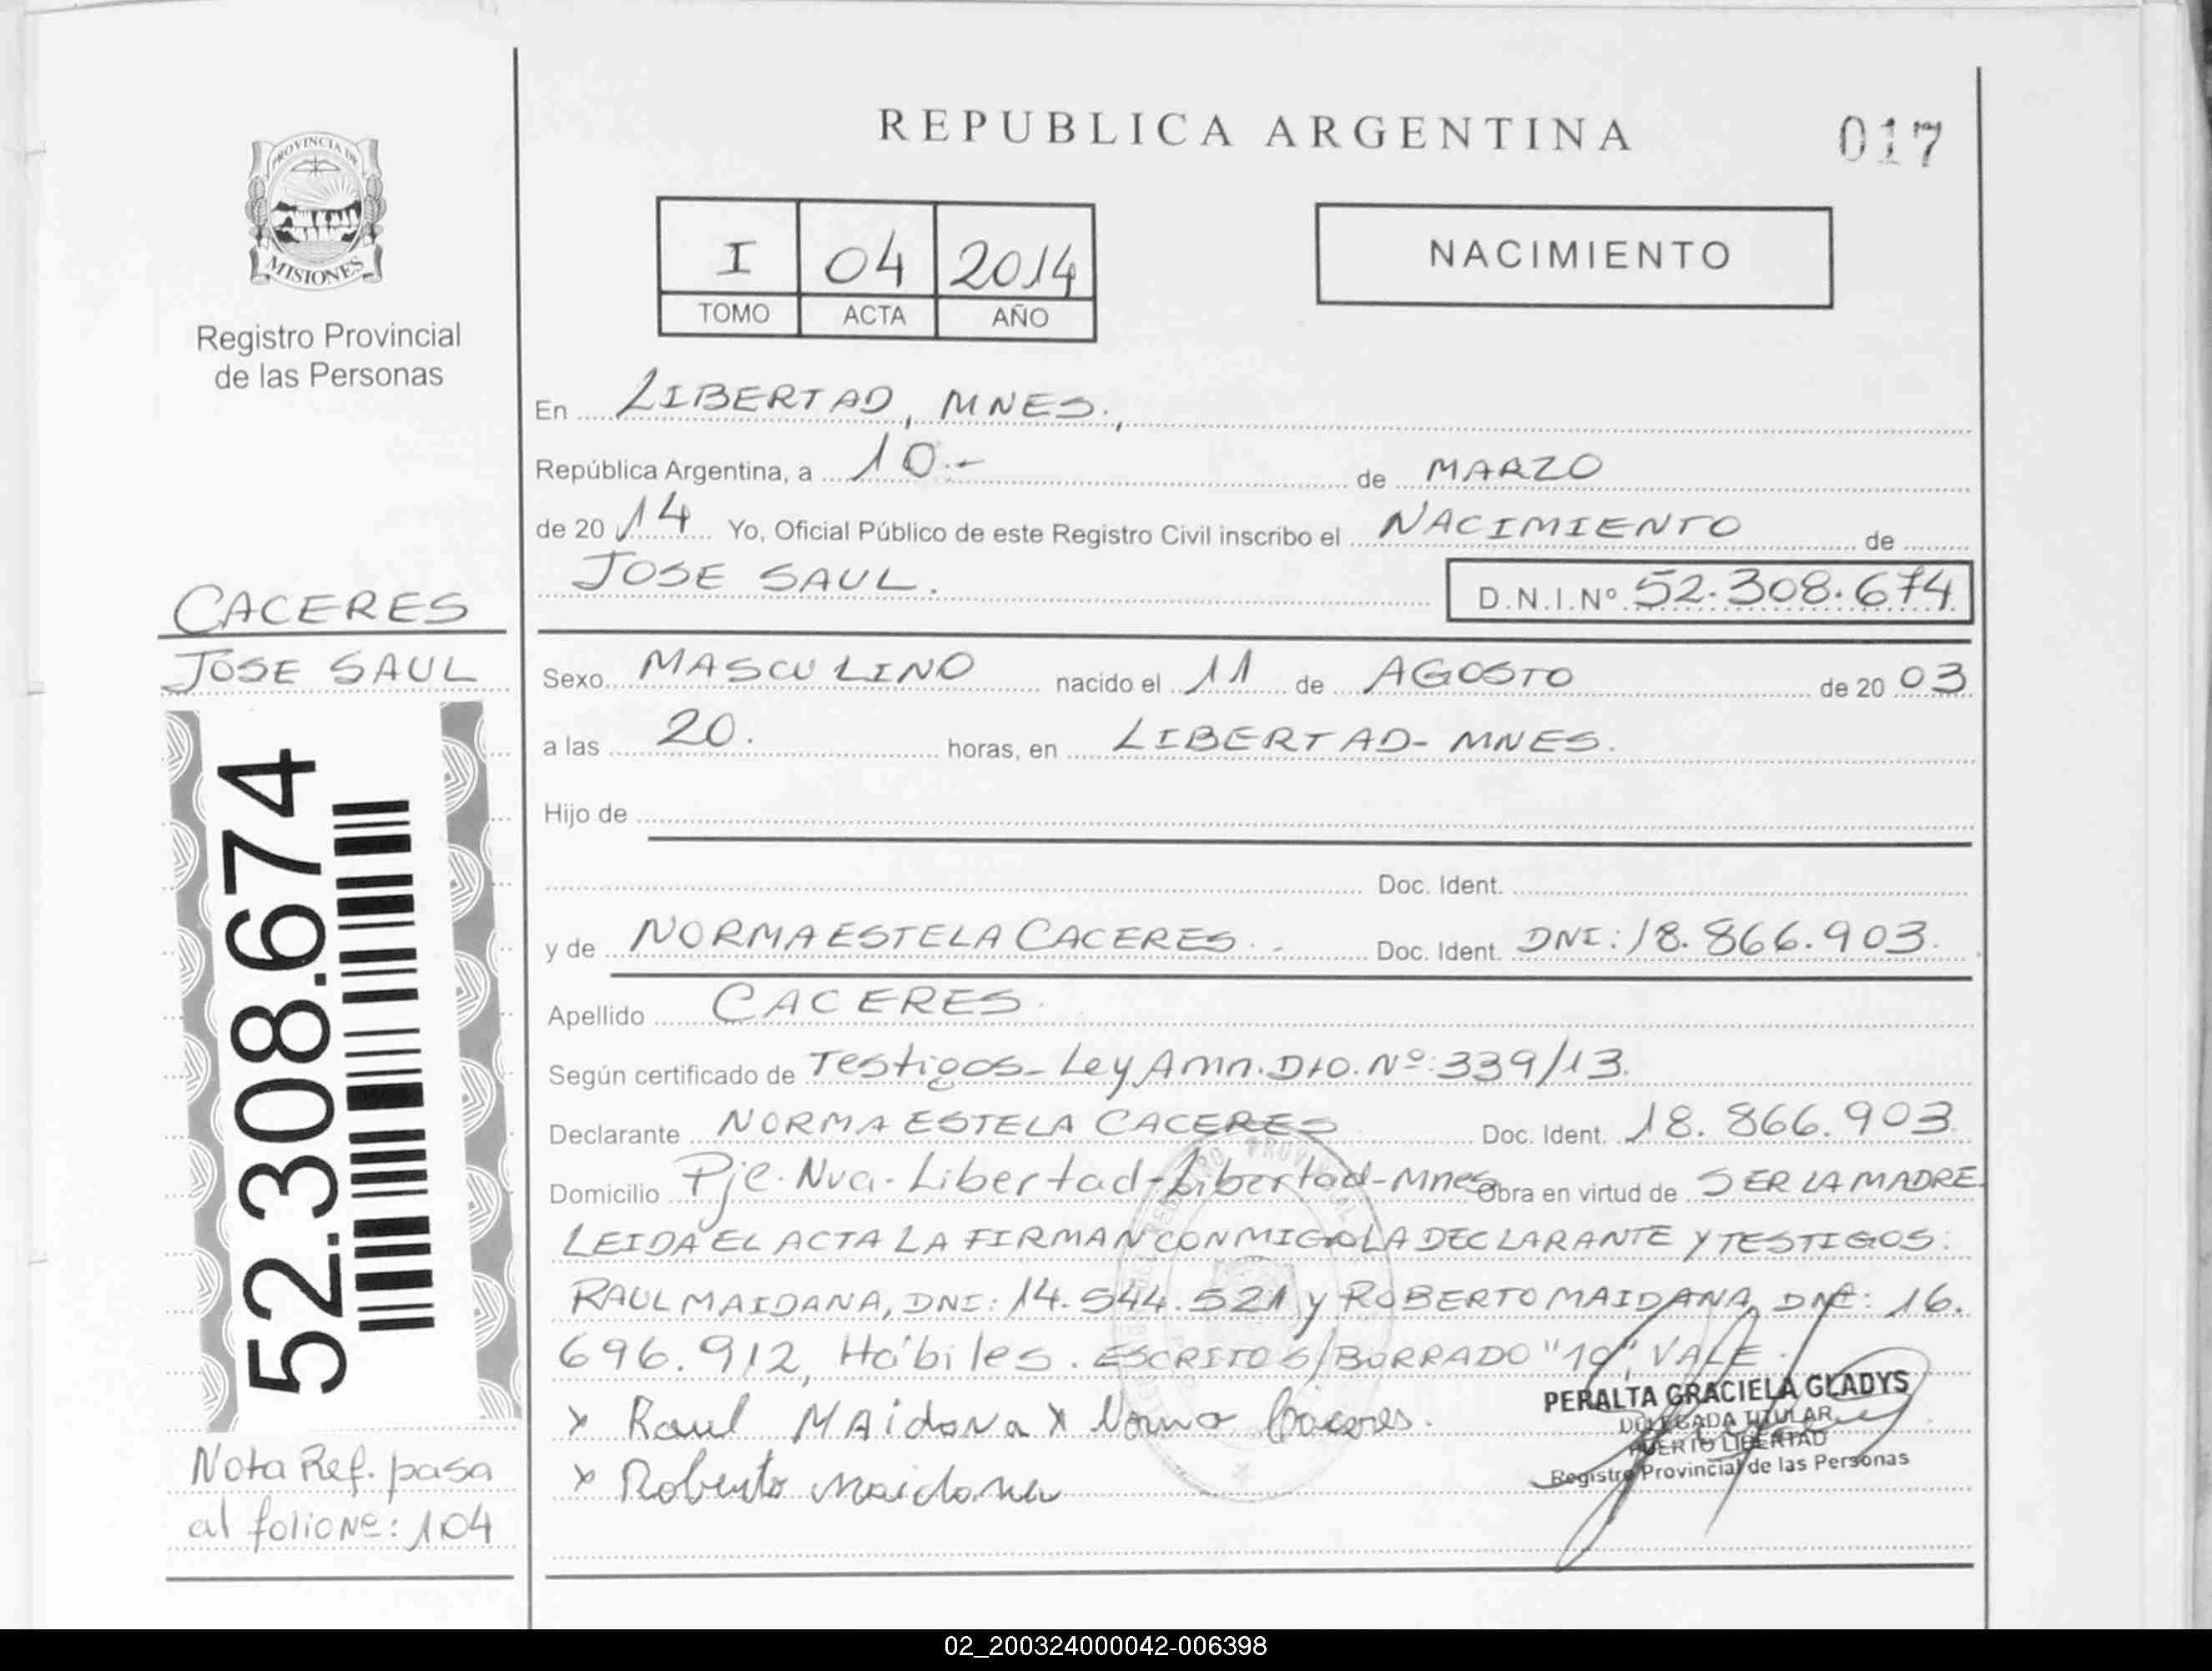 REPUBLICA ARGENTINA
017
PROVINCIA DE
MISIONES
Registro Provincial
de las Personas
I 04 2014
TOMO ACTA AÑO
NACIMIENTO
En LIBERTAD, MNES.,
República Argentina, a 10.- de MARZO
de 20 14 Yo, Oficial Público de este Registro Civil inscribo el NACIMIENTO de
JOSE SAUL. D.N.I.Nº 52.308.674
CACERES
JOSE SAUL
52.308.674
Sexo MASCULINO nacido el 11 de AGOSTO de 20 03
a las 20. horas, en LIBERTAD- MNES.
Hijo de
Doc. Ident.
y de NORMA ESTELA CACERES.- Doc. Ident. DNI: 18.866.903.
Apellido CACERES.
Según certificado de Testigos- Ley Amn. Dto. Nº: 339/13.
Declarante NORMA ESTELA CACERES Doc. Ident. 18.866.903
Domicilio Pje. Nva. Libertad-Libertad-Mnes Obra en virtud de SER LA MADRE.
LEIDA EL ACTA LA FIRMAN CONMIGO LA DECLARANTE Y TESTIGOS:
RAUL MAIDANA, DNI: 14.544.521 y ROBERTO MAIDANA, DNI: 16.
696.912, Hábiles. ESCRITO S/BORRADO "10", VALE.
x Raul MAidaNa x Norma Caceres.
x Roberto Maidana
PERALTA GRACIELA GLADYS
DELEGADA TITULAR
PUERTO LIBERTAD
Registro Provincial de las Personas
Nota Ref. pasa
al folio Nº: 104
02_200324000042-006398